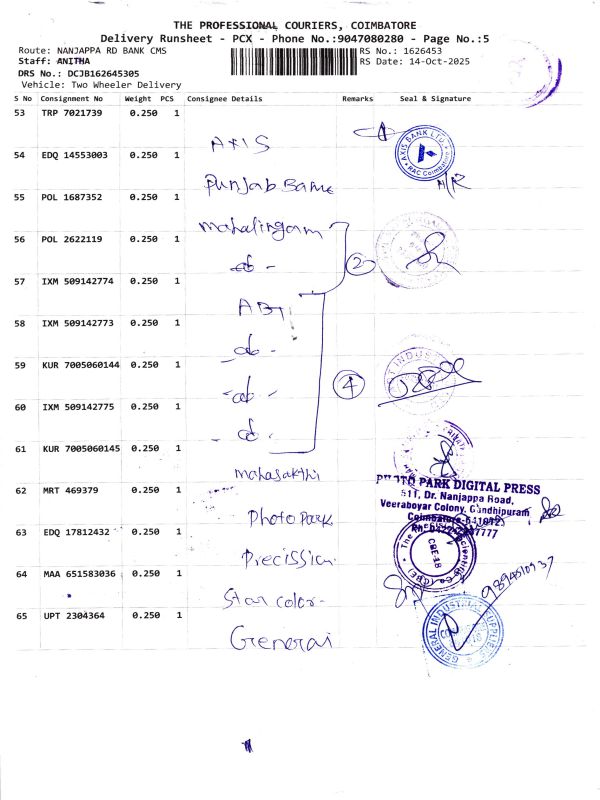 THE PROFESSIONAL COURIERS, COIMBATORE
Delivery Runsheet - PCX - Phone No.:9047080280 - Page No.:5
Route: NANJAPPA RD BANK CMS
RS No.: 1626453
Staff: ANITHA
RS Date: 14-Oct-2025
DRS No.: DCJB162645305
Vehicle: Two Wheeler Delivery
S No Consignment No Weight PCS Consignee Details Remarks Seal & Signature
53 TRP 7021739 0.250 1
AXIS
AXIS BANK LTD.
RAC Coimbatore
54 EDQ 14553003 0.250 1
Punjab Bank
55 POL 1687352 0.250 1
Mahalingam
56 POL 2622119 0.250 1
do - 2
57 IXM 509142774 0.250 1
ABT
58 IXM 509142773 0.250 1
do -
59 KUR 7005060144 0.250 1
-do - 4
60 IXM 509142775 0.250 1
- do -
61 KUR 7005060145 0.250 1
Mahasakthi
62 MRT 469379 0.250 1
PHOTO PARK DIGITAL PRESS
511, Dr. Nanjappa Road,
Veeraboyar Colony, Gandhipuram
Coimbatore-641012
Photo Park
63 EDQ 17812432 0.250 1
Precission
CBE-18
64 MAA 651583036 0.250 1
Star color-
65 UPT 2304364 0.250 1
General
GENERAL INDUSTRIAL SUPPLIERS